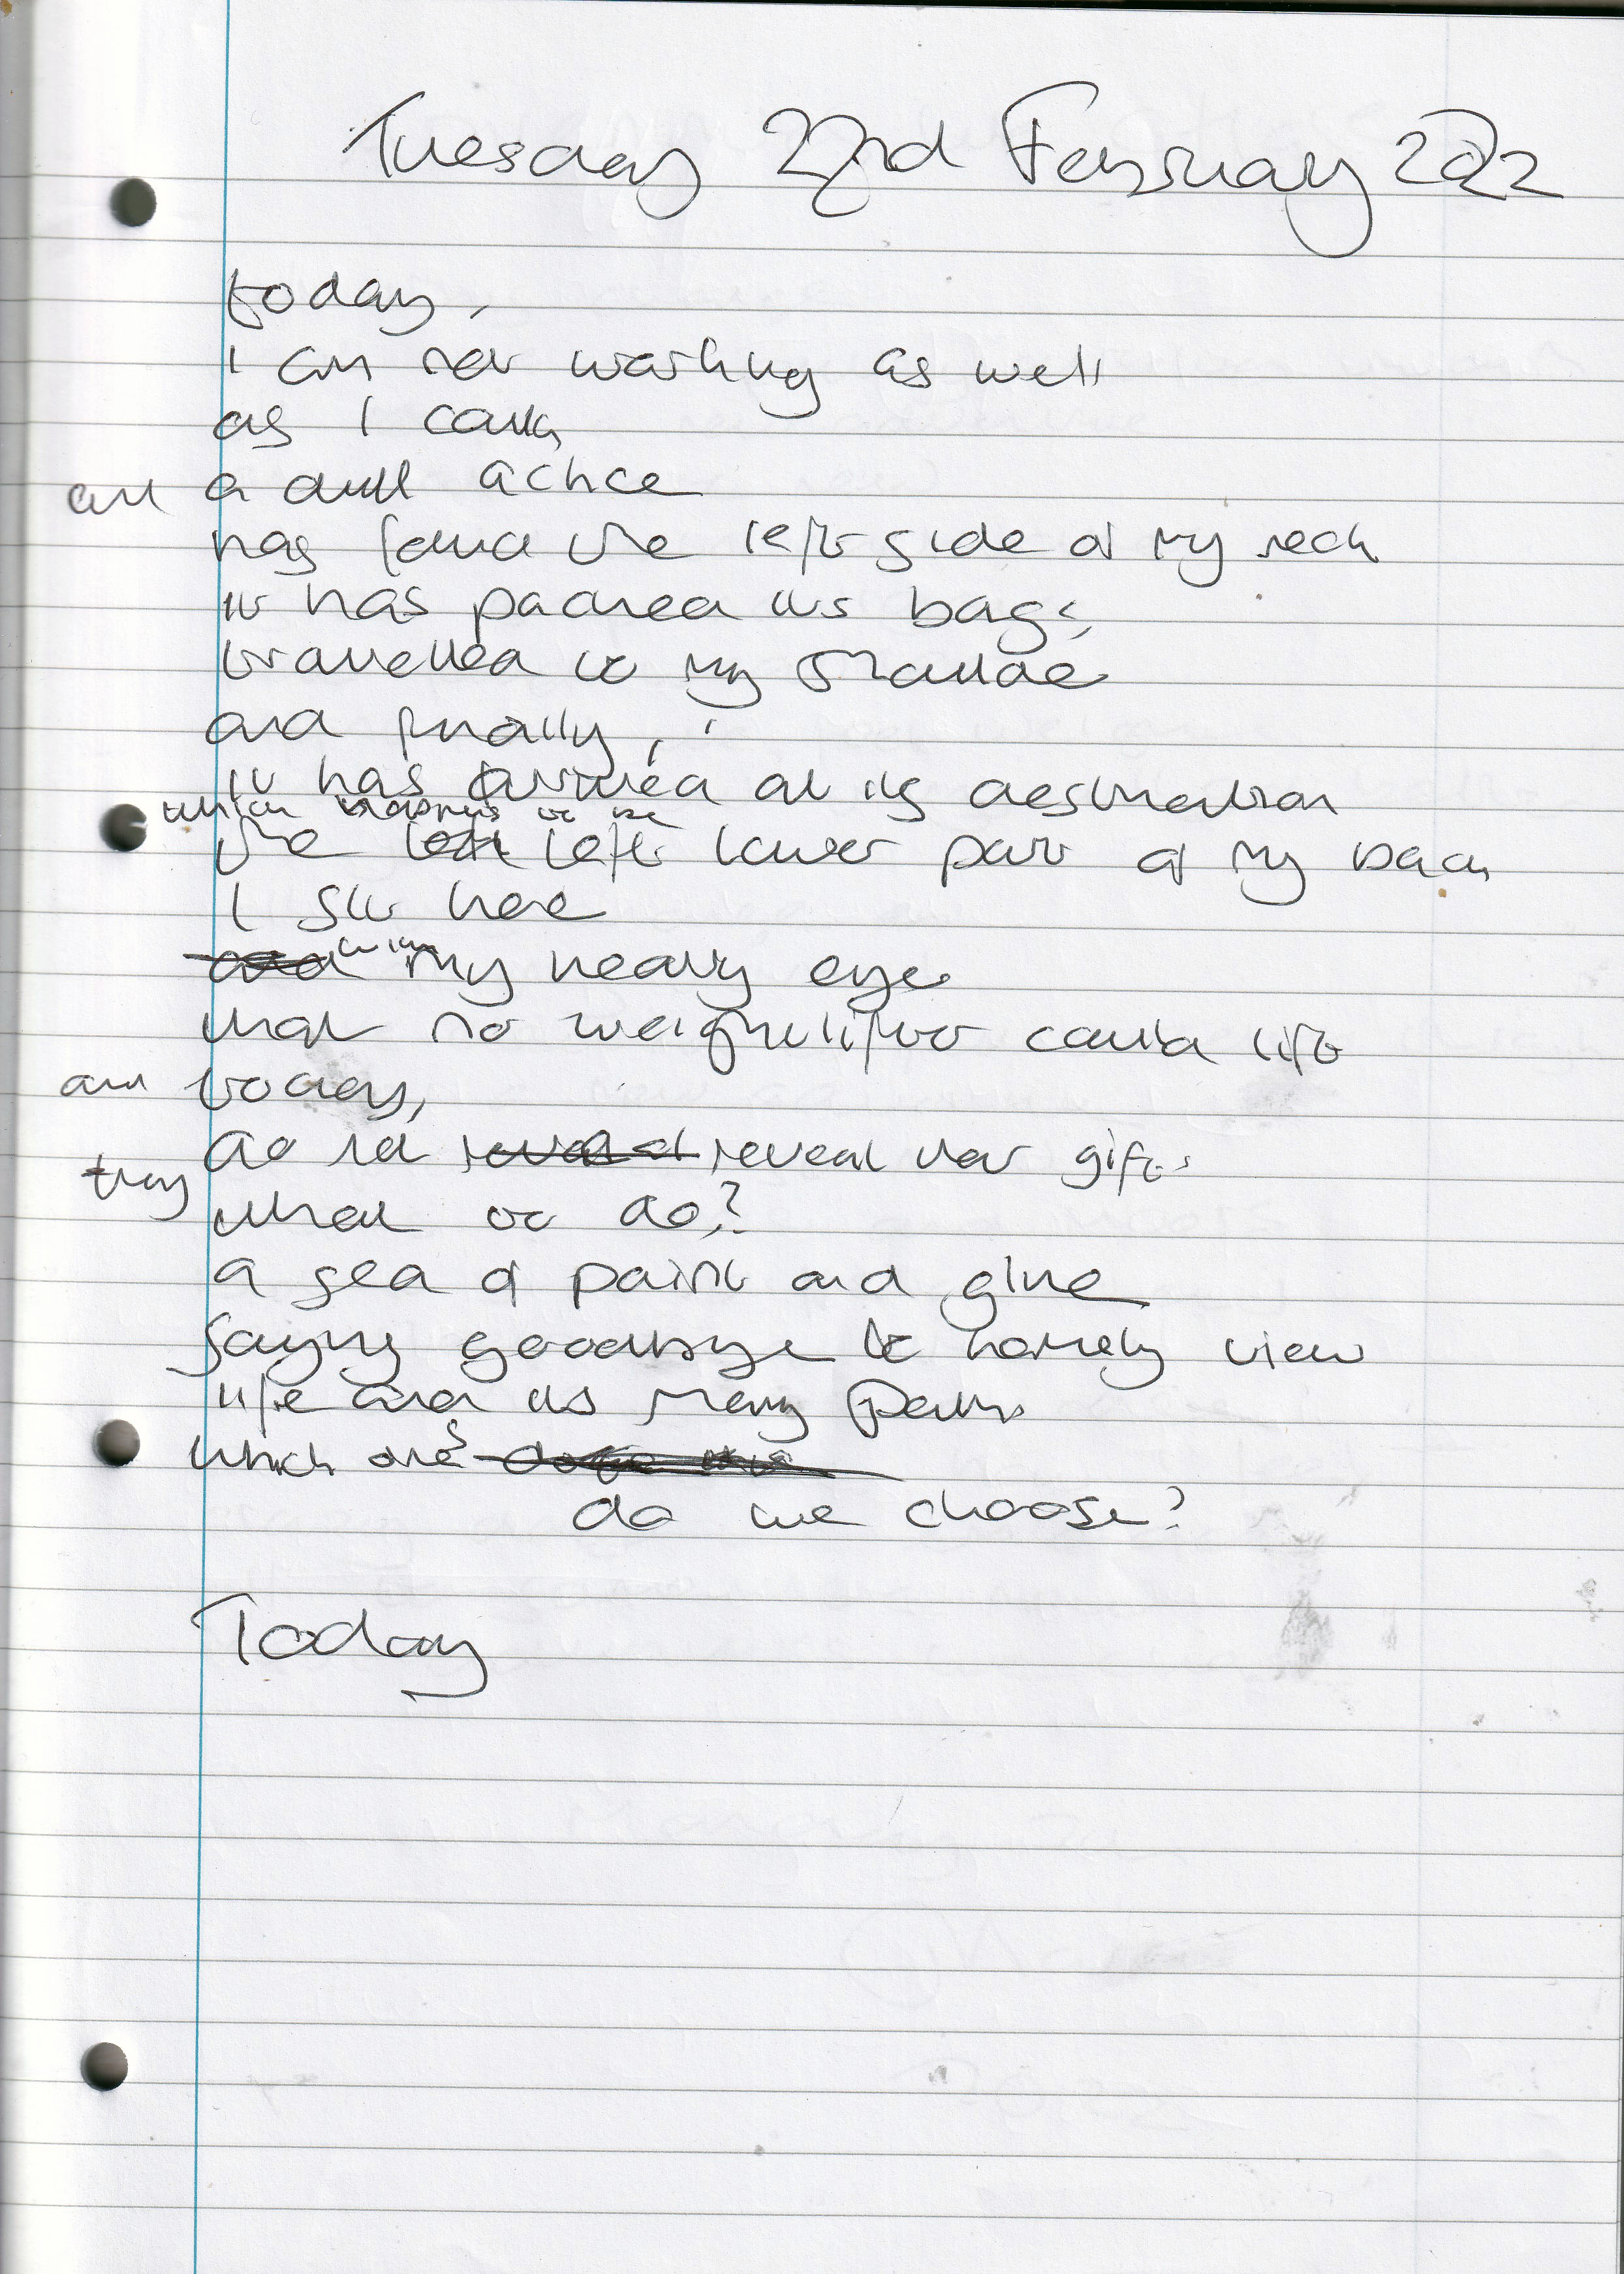 Tuesday 22nd February 2022
today,
I am not working as well
as I could,
and a dull achce
has found the left side of my neck
it has packed its bags,
travelled to my shoulder
and finally,
it has arrived at its destination
which happens to be
the left lower part of my back
I sit here
with my heavy eyes
that no weightlifter could lift
and today,
do not reveal their gifts
they
what to do?
a sea of paint and glue
saying goodbye to homely view
life and its many paths
which ones
do we choose?
Today